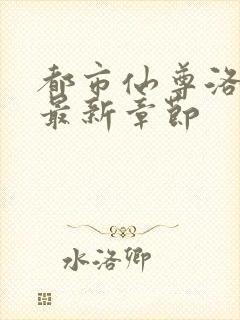 都市仙尊洛
最新章节
水洛卿